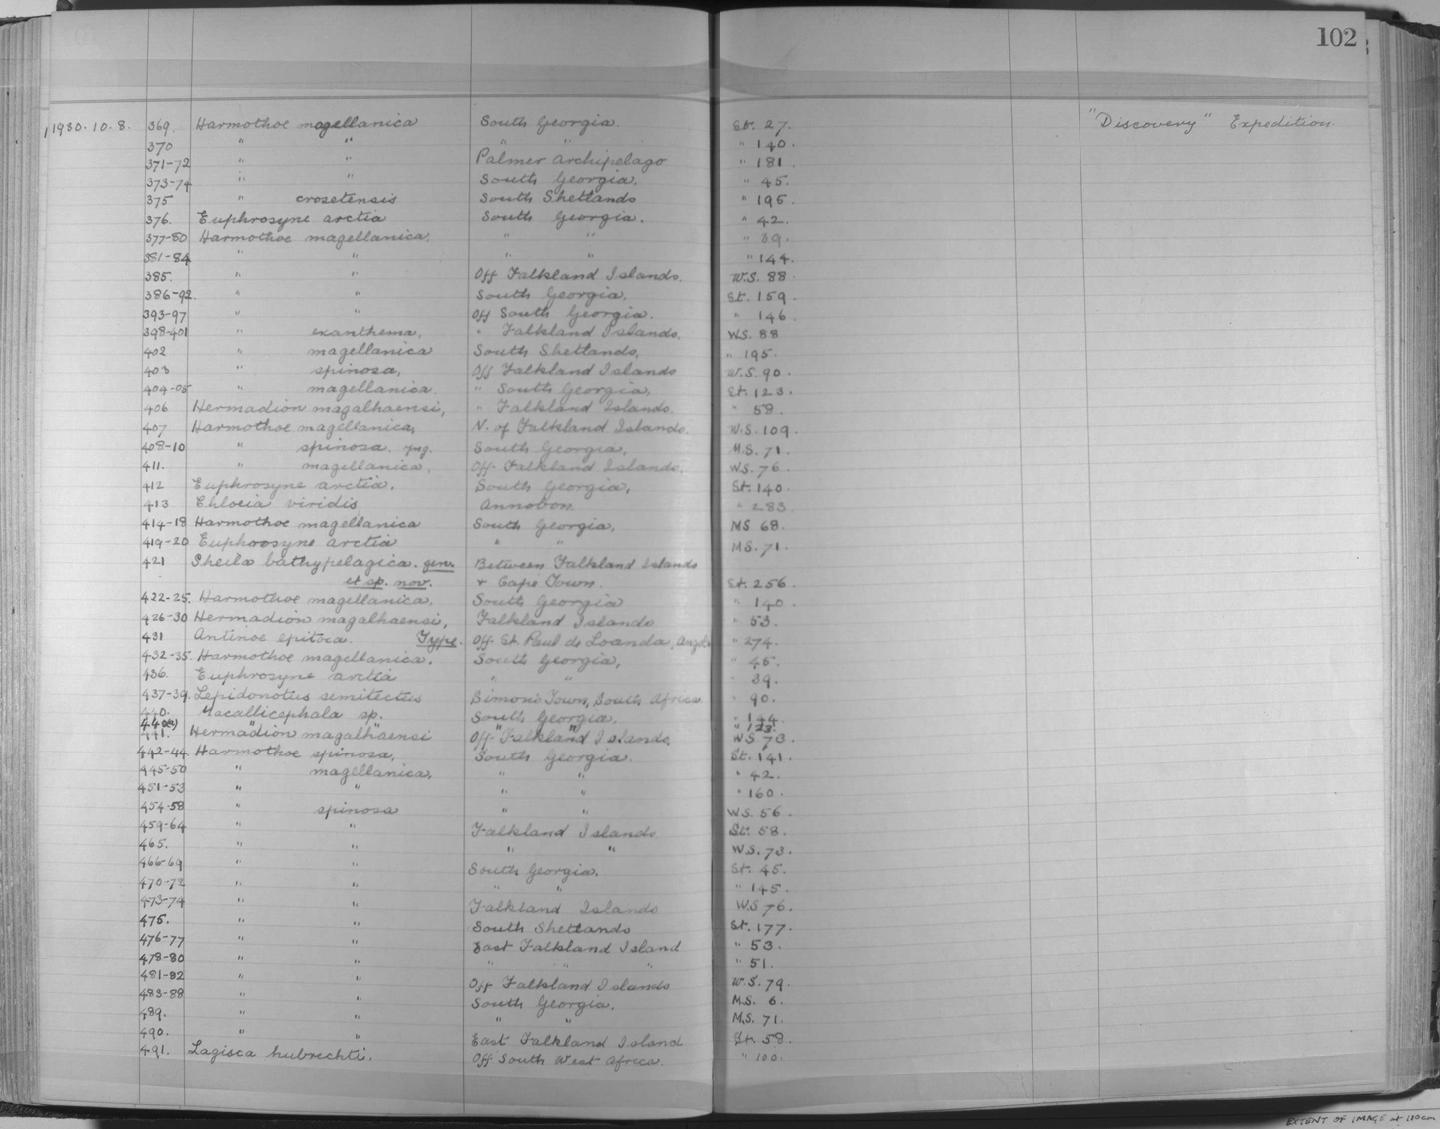 102
1930.10.8. 369. Harmothoe magellanica South Georgia. St. 27. "Discovery" Expedition.
370 " " " " " 140.
371-72 " " Palmer Archipelago " 181.
373-74 " " South Georgia. " 45.
375 " crosetensis South Shetlands " 195.
376. Euphrosyne arctia South Georgia. " 42.
377-80 Harmothoe magellanica. " " " 39.
381-84 " " " " " 144.
385. " " Off Falkland Islands. W.S. 88
386-92. " " South Georgia. St. 159.
393-97 " " Off South Georgia. " 146.
398-401 " exanthema, " Falkland Islands. W.S. 88
402 " magellanica South Shetlands, " 195.
403 " spinosa, Off Falkland Islands W.S. 90.
404-05 " magellanica. " South Georgia, St. 123.
406 Hermadion magalhaensi, " Falkland Islands. " 58.
407 Harmothoe magellanica, N. of Falkland Islands. W.S. 109.
408-10 " spinosa. South Georgia, M.S. 71.
411. " magellanica, Off Falkland Islands. W.S. 76.
412 Euphrosyne arctia. South Georgia, St. 140.
413 Chloeia viridis Annobon. " 283.
414-18 Harmothoe magellanica South Georgia, MS 68.
419-20 Euphrosyne arctia " " M.S. 71.
421 Sheila bathypelagica. gen. Between Falkland Islands
et sp. nov. + Cape Town. St. 256.
422-25. Harmothoe magellanica. South Georgia " 140.
426-30 Hermadion magalhaensi, Falkland Islands " 53.
431 Antinoe epitoca. Type. Off St. Paul de Loanda, " 274.
432-35. Harmothoe magellanica. South Georgia, " 45.
436. Euphrosyne arctia " " " 39.
437-39. Lepidonotus semitectus Simon's Town, South Africa " 90.
440. Macallicephala sp. South Georgia. " 144.
440(a) " " " " " 123.
441. Hermadion magalhaensi Off Falkland Islands, W.S. 73.
442-44. Harmothoe spinosa, South Georgia. St. 141.
445-50 " magellanica, " " " 42.
451-53 " " " " " 160.
454-58 " spinosa " " W.S. 56.
459-64 " " Falkland Islands St. 58.
465. " " " " W.S. 73.
466-69 " " South Georgia. St. 45.
470-72 " " " " " 145.
473-74 " " Falkland Islands W.S 76.
475. " " South Shetlands St. 177.
476-77 " " East Falkland Island " 53.
478-80 " " " " " " 51.
481-82 " " Off Falkland Islands W.S. 79.
483-88 " " South Georgia. M.S. 6.
489. " " " " M.S. 71.
490. " " East Falkland Island St. 58.
491. Lagisca hubrechti. Off South West Africa. " 100.
EXTENT OF IMAGE at